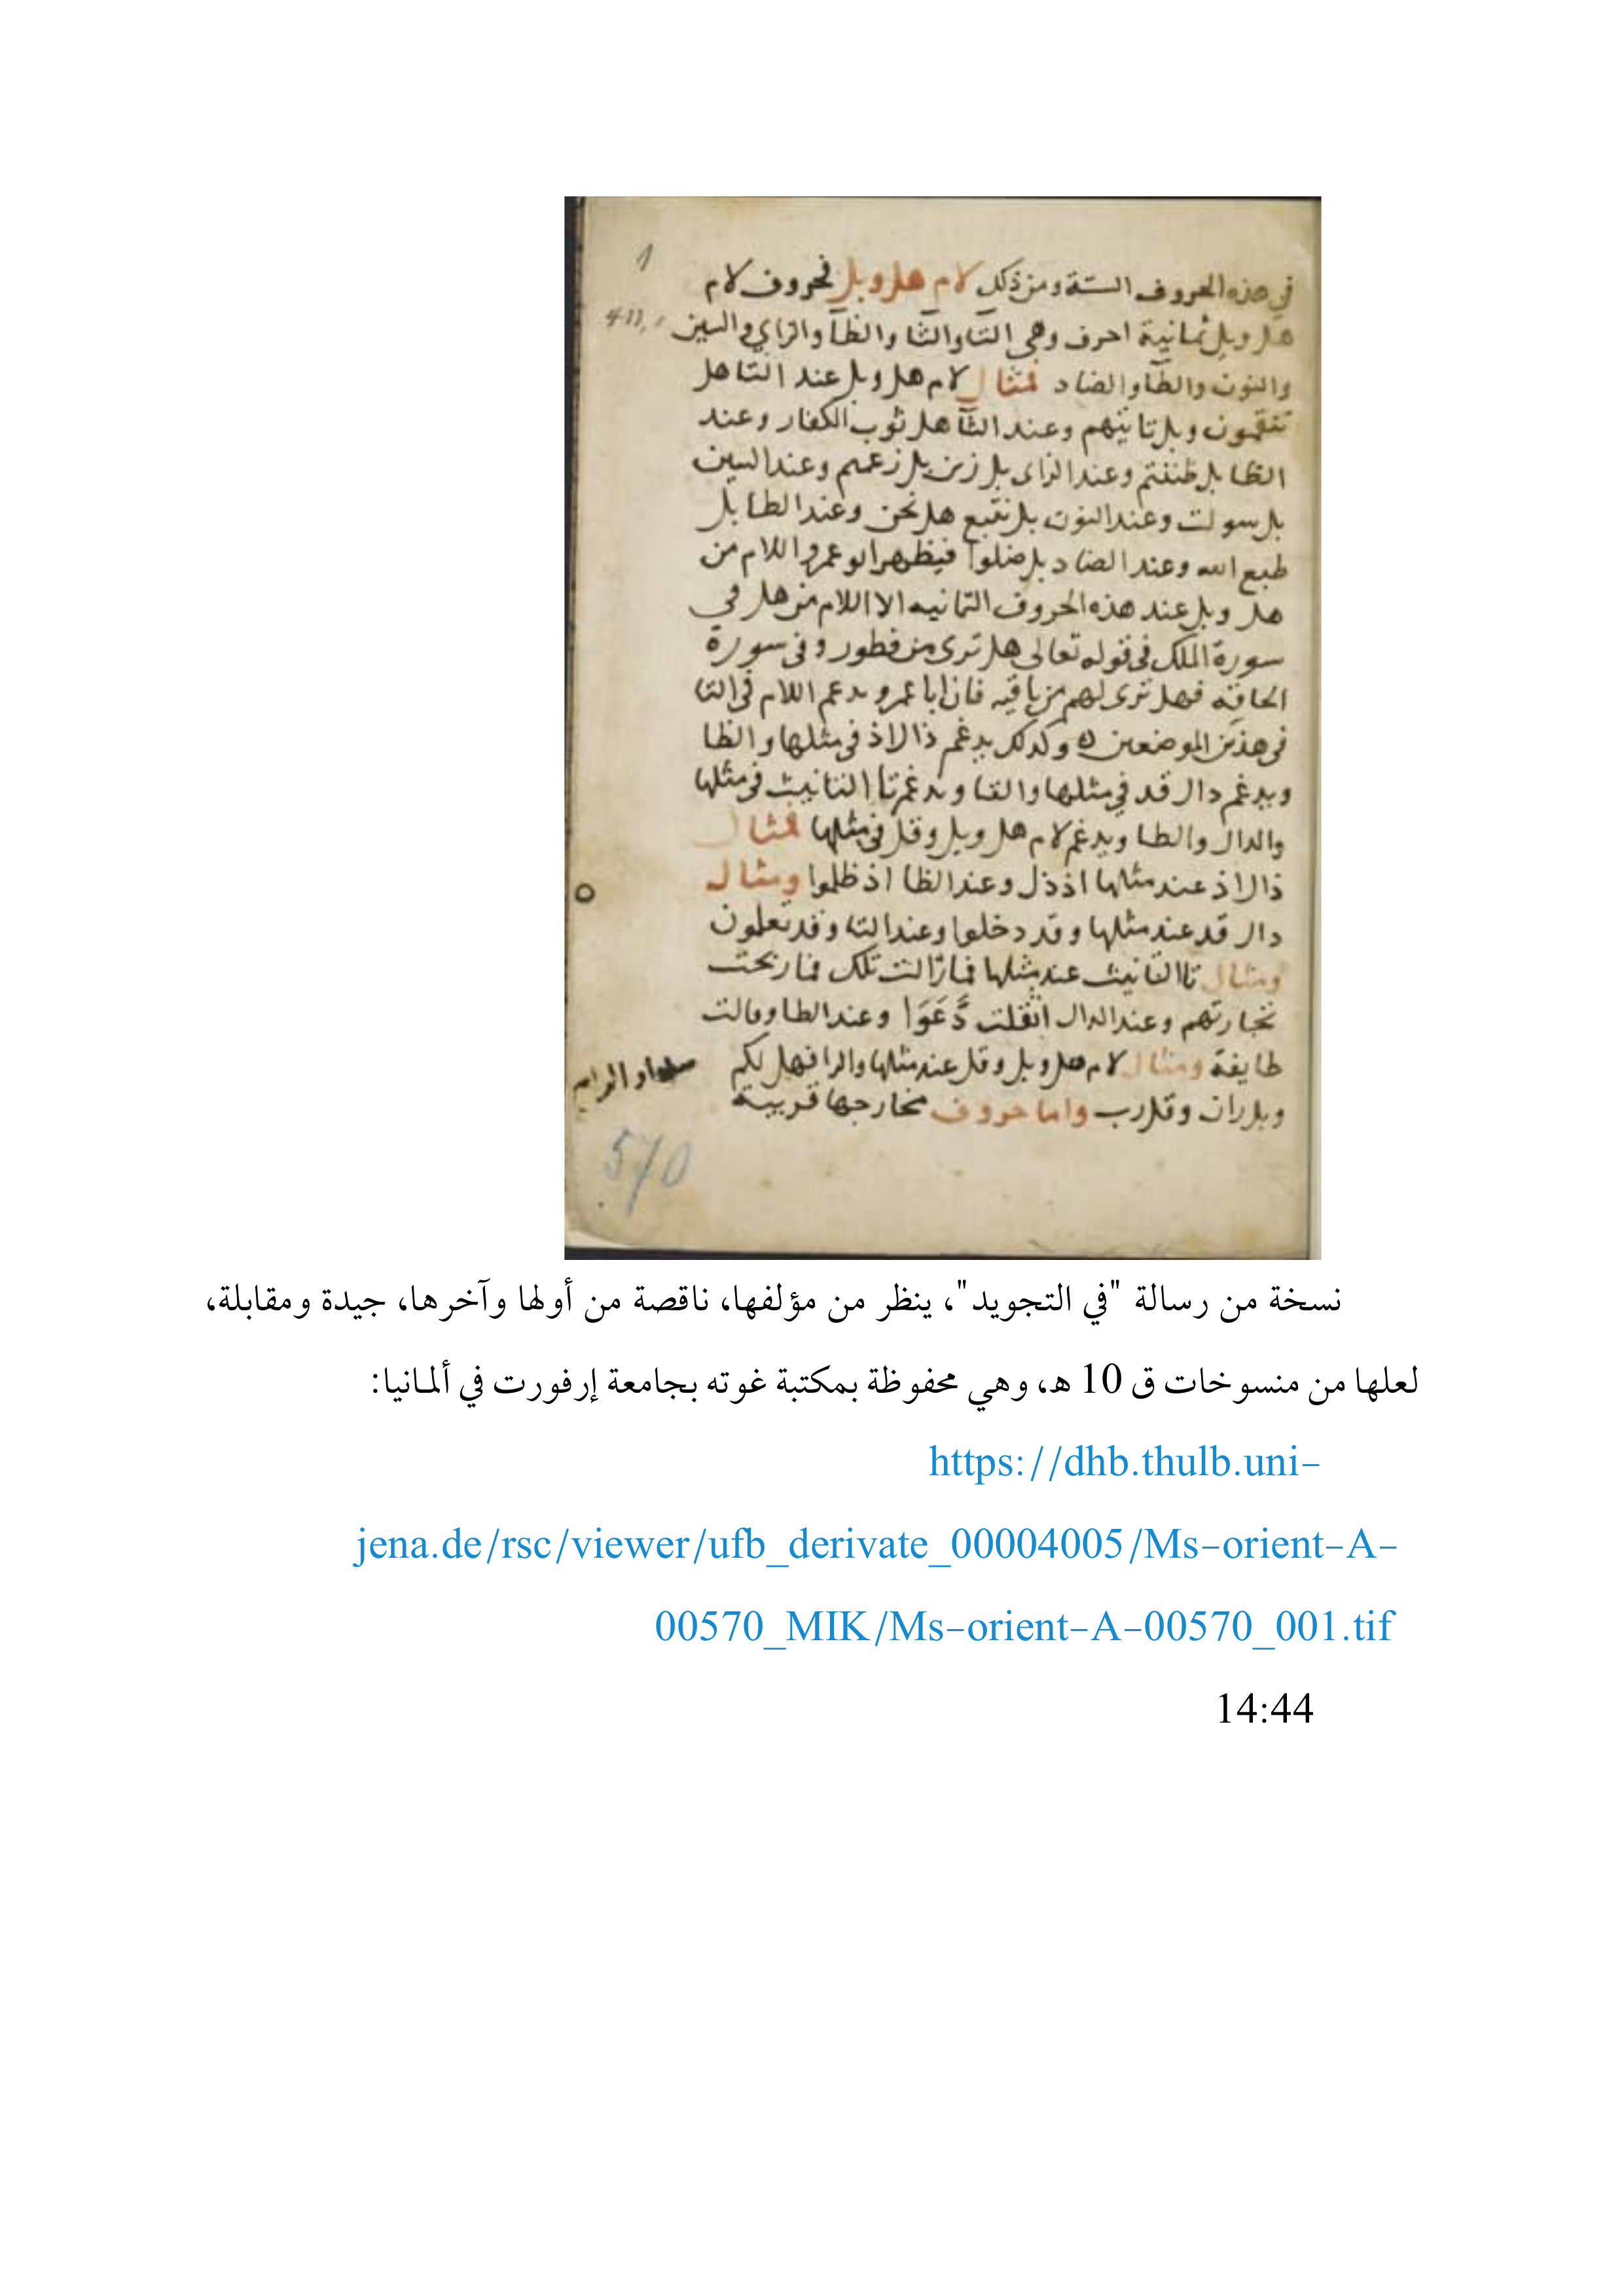 1
في هذه الحروف الستة ومن ذلك لام هل وبل فحروف لام
هل وبل ثمانية احرف وهي التآ والثآ والظآ والزاي والسين
والنون والطآ والضاد فمثال لام هل وبل عند التا هل
تنقمون وبل تاتيهم وعند الثآ هل ثوب الكفار وعند
الظا بل ظننتم وعند الزاى بل زين بل زعمتم وعند السين
بل سولت وعند النون بل نتبع هل نحن وعند الطا بل
طبع الله وعند الضاد بل ضلوا فيظهر ابو عمرو اللام من
هل وبل عند هذه الحروف الثمانيه الا اللام من هل في
سورة الملك في قوله تعالى هل ترى من فطور وفى سورة
الحاقه فهل ترى لهم من باقيه فان ابا عمرو يدغم اللام فى التا
فى هذين الموضعين ه وكذلك يدغم ذال اذ فى مثلها والظا
ويدغم دال قد في مثلها والتا ويدغم تا التانيث فى مثلها
والدال والطا ويدغم لام هل وبل وقل فى مثلها فمثال
ذال اذ عند مثلها اذ ذل وعند الظا اذ ظلموا ومثال
دال قد عند مثلها وقد دخلوا وعند التا وقد تعلمون
ومثال تا التانيث عند مثلها فما زالت تلك فما ربحت
تجارتهم وعند الدال اثقلت دَّعَوَا وعند الطا وقالت
طايفة ومثال لام هل وبل وقل عند مثلها والرا فهل لكم
وبل ران وقل رب واما حروف مخارجها قريبة
570
نسخة من رسالة "في التجويد"، ينظر من مؤلفها، ناقصة من أولها وآخرها، جيدة ومقابلة،
لعلها من منسوخات ق 10 هـ، وهي محفوظة بمكتبة غوته بجامعة إرفورت في ألمانيا:
https://dhb.thulb.uni-
jena.de/rsc/viewer/ufb_derivate_00004005/Ms-orient-A-
00570_MIK/Ms-orient-A-00570_001.tif
14:44